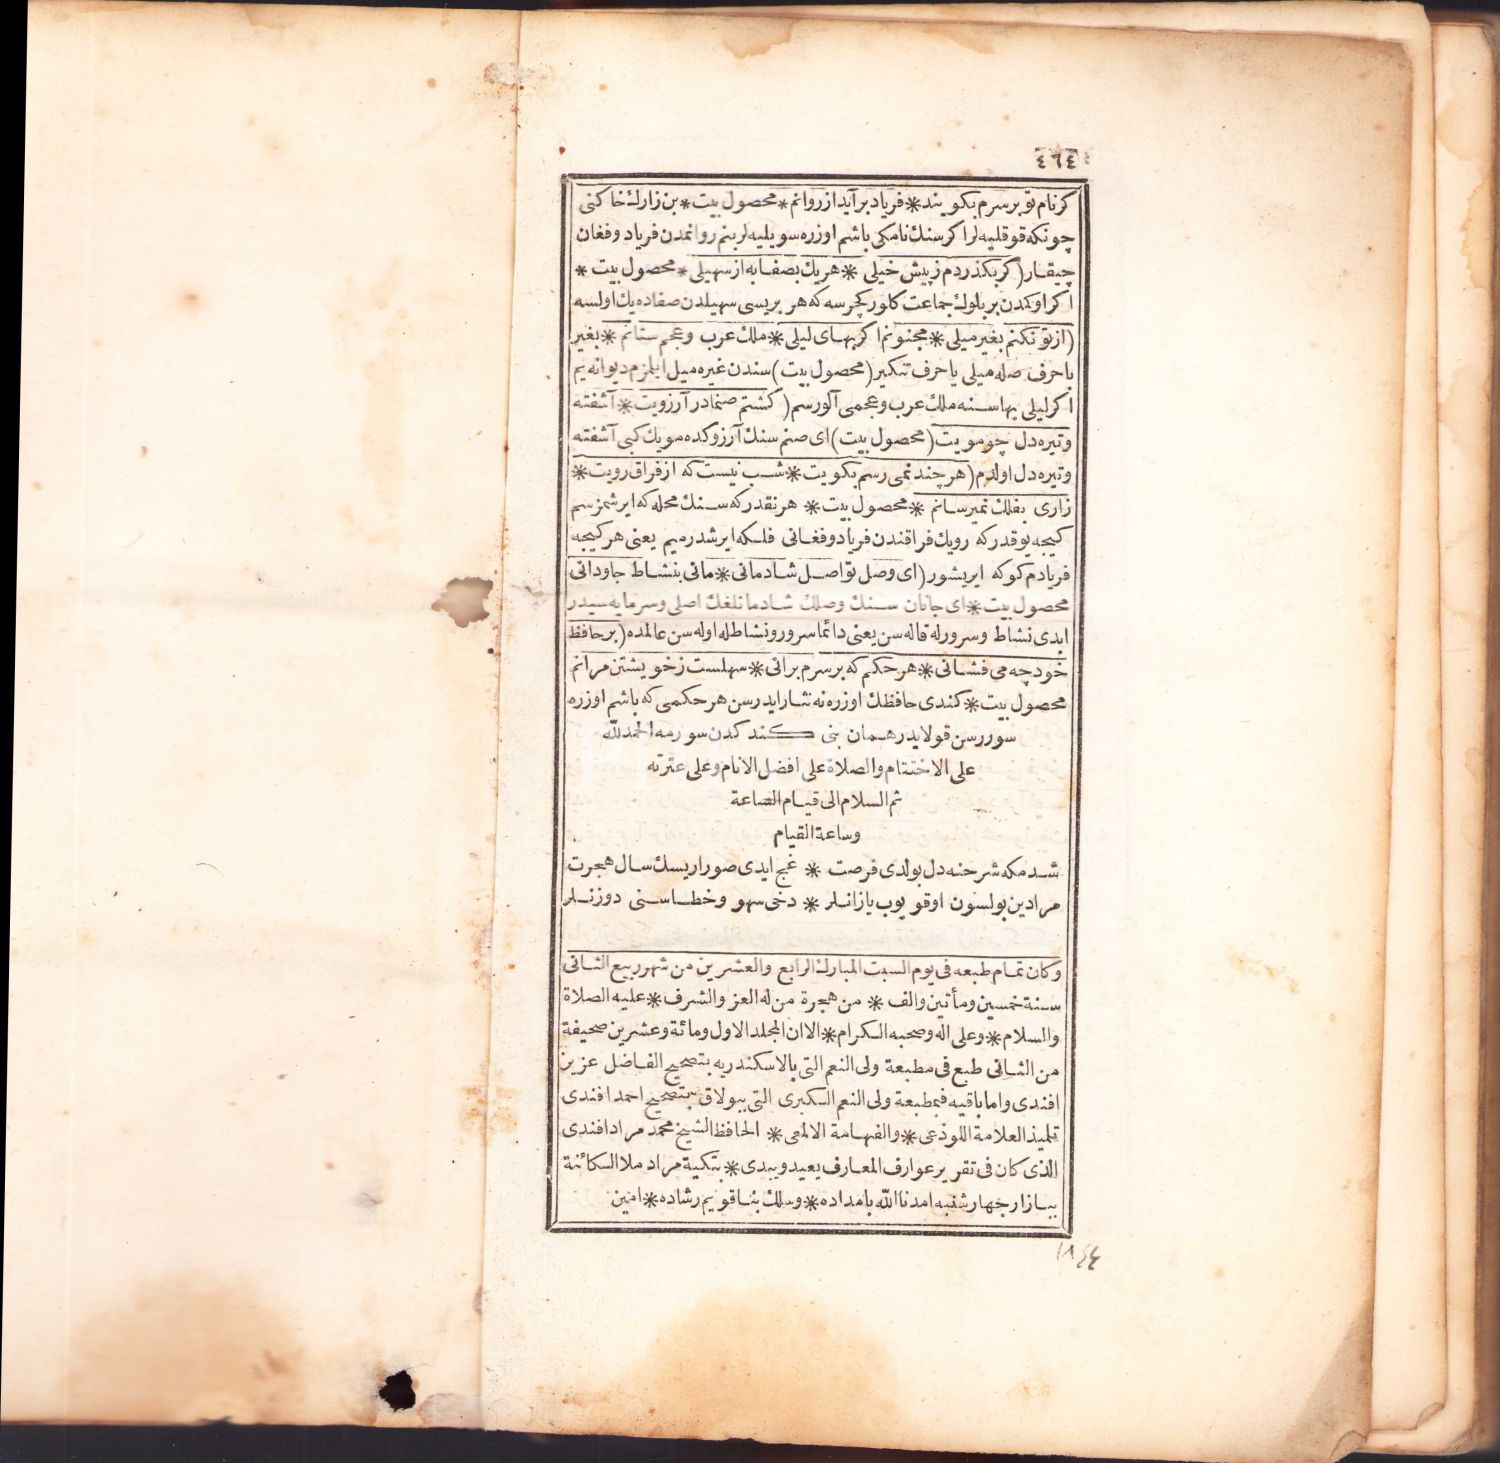 ٤٦٤
كرنام تو برسرم بكويند * فرياد برآيد از روانم * محصول بيت * بن زارك خاكنى
چونكه قوقليه لر اكر سنك نامكى باشم اوزره سويليه لر بنم روانمدن فرياد وفغان
چيقار (كر بكذردم ز پيش خيلى * هر يك بصفا به از سهيلى * محصول بيت *
اكر اوكمدن بر بلوك جماعت كلور كچرسه كه هر بريسى سهيلدن صفاده يك اولسه
(از تو نكنم بغير ميلى * مجنونم اكر بهاى ليلى * ملك عرب وعجم ستانم * بغير
يا حرف صله ميلى يا حرف تنكير (محصول بيت) سندن غيره ميل ايلمزم ديوانه يم
اكر ليلى بهاسنه ملك عرب وعجمى آلورسم (كشتم صنما در آرزويت * آشفته
وتيره دل چو مويت (محصول بيت) اى صنم سنك آرزوكده مويك كبى آشفته
وتيره دل اولدم (هر چند نمى رسم بكويت * شب نيست كه از فراق رويت *
زارى بفلك نميرسانم * محصول بيت * هر نقدر كه سنك محله كه ايرشمزسم
كيجه يوقدر كه رويك فراقندن فرياد وفغانى فلكه ايرشدرميم يعنى هر كيجه
فريادم كوكه ايريشور (اى وصل تو اصل شادمانى * مانى بنشاط جاودانى
محصول بيت * اى جانان سنك وصلك شادمانلغك اصلى وسرمايه سيدر
ابدى نشاط وسرورله قاله سن يعنى دائما سرور ونشاطله اوله سن عالمده (بر حافظ
خود چه مى فشانى * هر حكم كه برسرم برانى * سهلست ز خويشتن مرانم
محصول بيت * كندى حافظك اوزره نه نثار ايدرسن هر حكمى كه باشم اوزره
سوررسن قولايدر همان بنى كندكدن سورمه الحمد لله
على الاختتام والصلاة على افضل الانام وعلى عترته
ثم السلام الى قيام الساعة
وساعة القيام
شدمكه شرحنه دل بولدى فرصت * غنج ايدى صورارسك سال هجرت
مرادين بولسون اوقويوب يازانلر * دخى سهو وخطاسنى دوزنلر
وكان تمام طبعه فى يوم السبت المبارك الرابع والعشرين من شهر ربيع الثانى
سنة خمسين ومأتين والف * من هجرة من له العز والشرف * عليه الصلاة
والسلام * وعلى اله وصحبه الكرام * الا ان المجلد الاول ومائة وعشرين صحيفة
من الثانى طبع فى مطبعة ولى النعم التى بالاسكندريه بتصحيح الفاضل عزيز
افندى واما باقيه فبمطبعة ولى النعم الكبرى التى ببولاق بتصحيح احمد افندى
تلميذ العلامة اللوذعى * والفهامة الالمعى * الحافظ الشيخ محمد مراد افندى
الذى كان فى تقرير عوارف المعارف يعيد ويبدى * بتكية مراد ملا الكائنة
ببازار چهارشنبه امدنا الله بامداده * وسلك بنا قويم رشاده * امين